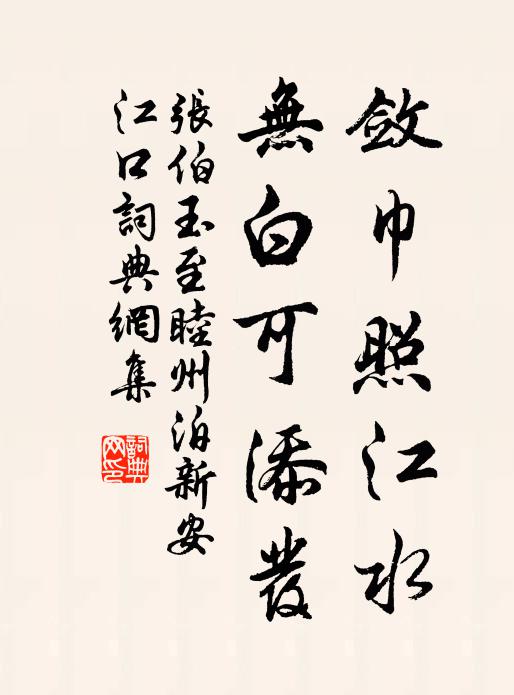 斂巾照江水
無白可添髮
張伯玉至睦州泊新安
江口詞典網集
詞典网印